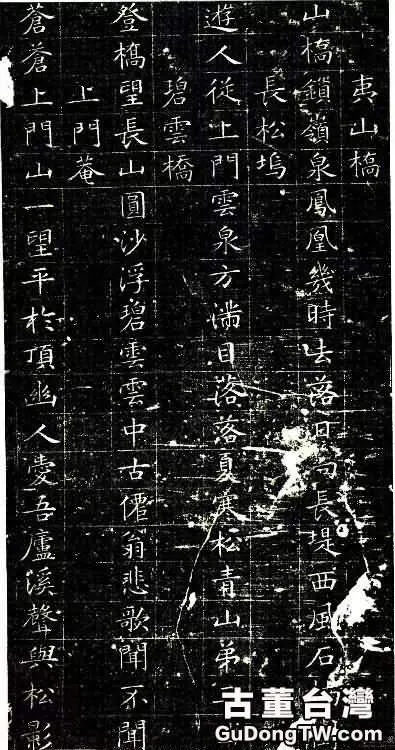 夷山橋
山橋鎖嶺泉鳳凰幾時去落日與長堤西風石
長松塢
遊人從上門雲泉方滿目落落夏寒松青山弟
碧雲橋
登橋望長山圓沙浮碧雲雲中古僊翁悲歌聞不聞
上門菴
蒼蒼上門山一望平於頂幽人愛吾廬溪聲與松影
古董台灣
GuDongTW.com